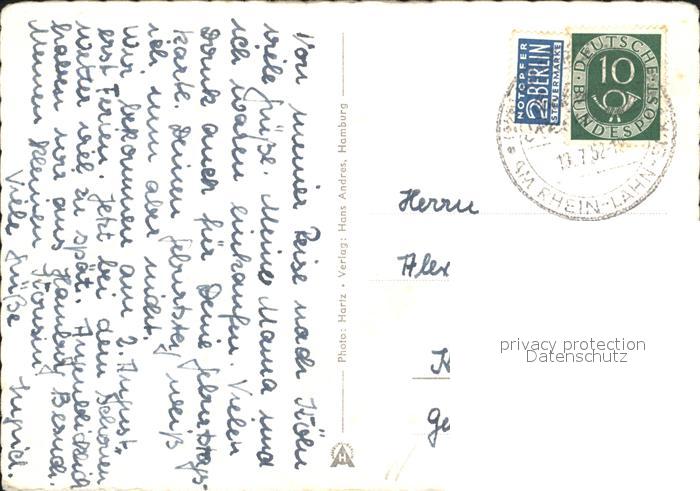 Von meiner Reise nach Köln
viele Grüße. Meine Mama und
ich waren einkaufen. Vielen
Dank auch für Deine Geburtstags-
karte. Deinen Geburtstag weiß
ich nun aber nicht.
Wir bekommen am 2. August
erst Ferien. Jetzt bei dem schönen
Wetter viel zu spät. Augenblicklich
haben wir aus Hamburg Besuch.
Meinen kleinen Kousin.
Viele Grüße
Photo: Hartz • Verlag: Hans Andres, Hamburg
HA
NOTOPFER
2 BERLIN
STEUERMARKE
DEUTSCHE
10
BUNDESPOST
13.7.52
AM RHEIN-LAHN-
Herrn
Alex
privacy protection
Datenschutz
K
Ge